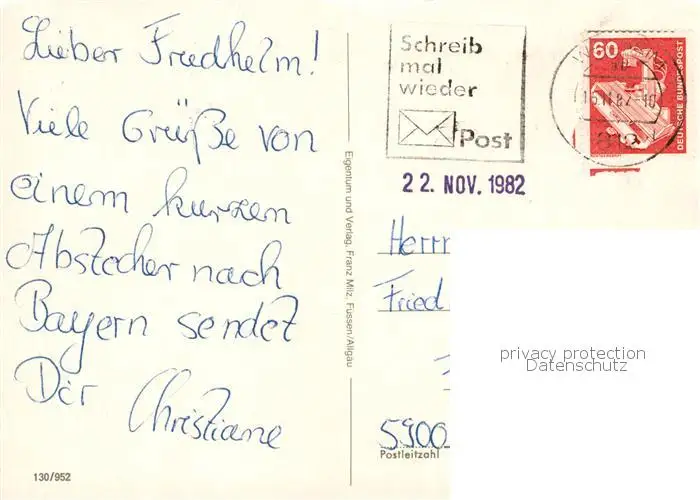 Lieber Friedhelm!
Viele Grüße von
einem kurzen
Abstecher nach
Bayern sendet
Dir Christiane
130/952
Eigentum und Verlag, Franz Milz, Füssen/Allgäu
Schreib
mal
wieder
Post
60
DEUTSCHE BUNDESPOST
22. NOV. 1982
Herrn
Fried
5900
Postleitzahl
privacy protection
Datenschutz